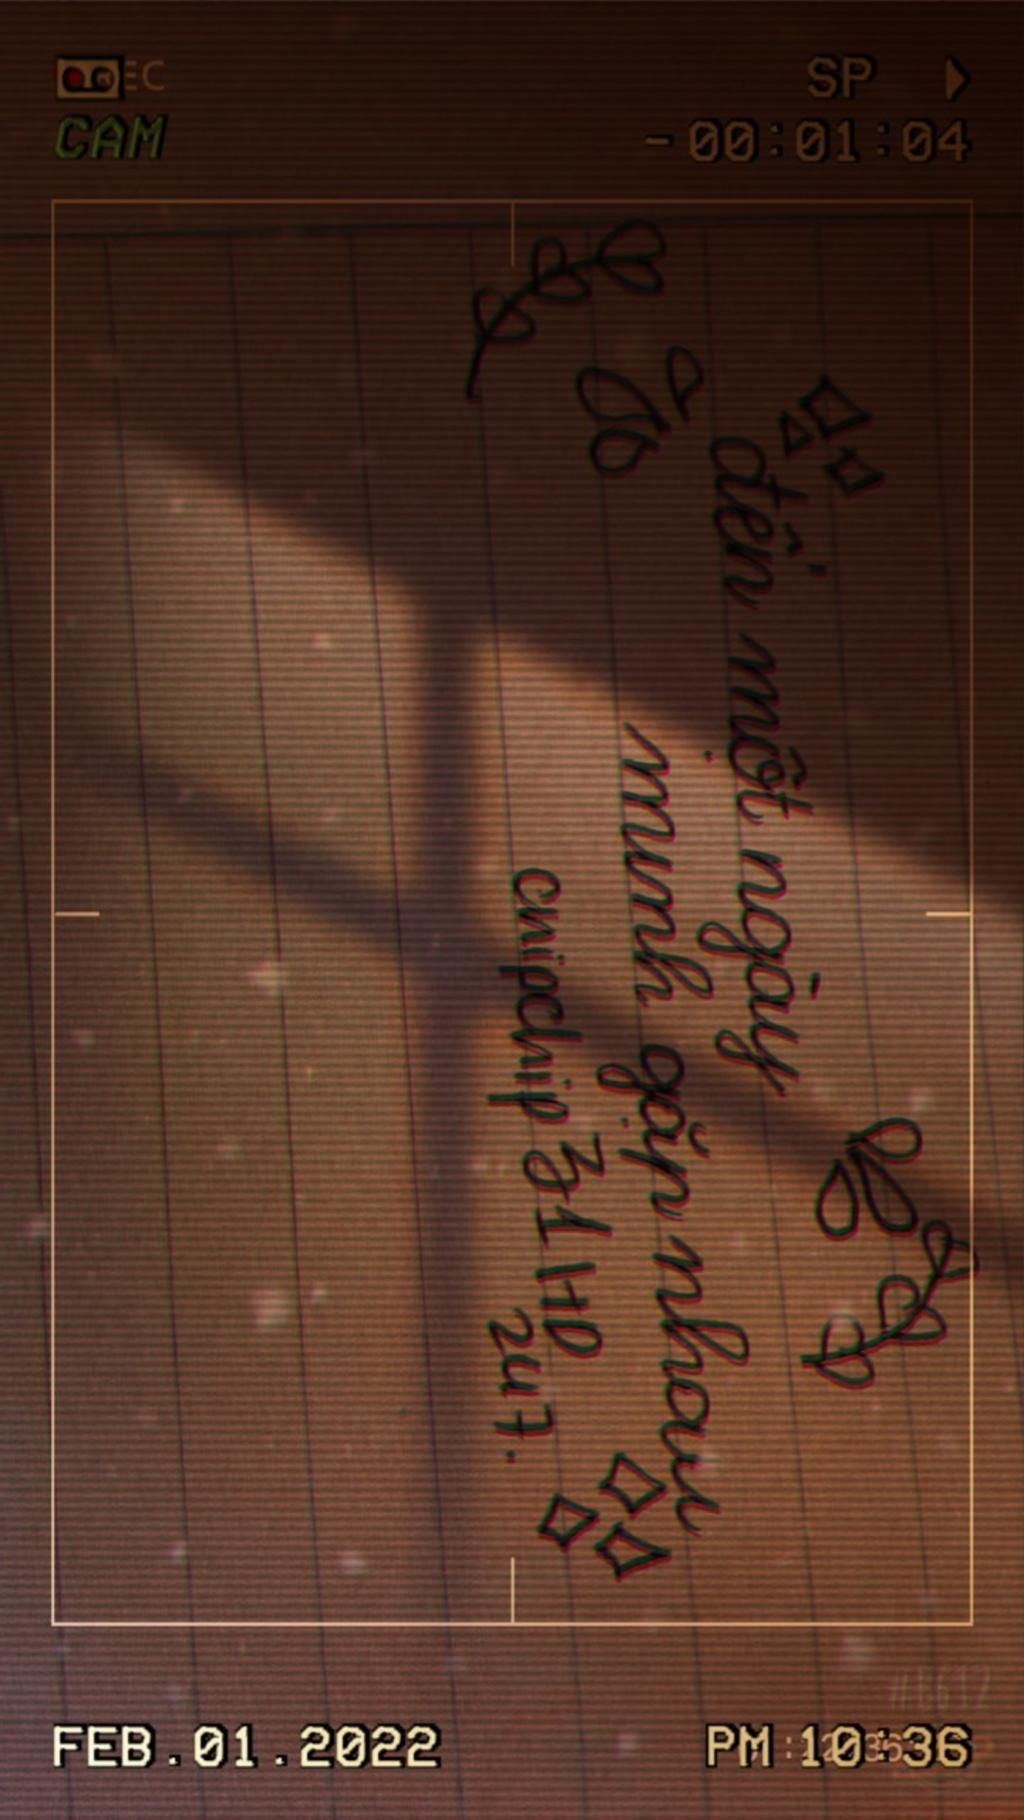 SP
CAM
-00:01:04
đến một ngày
mình gặp nhau
chipchip
247.
#B612
FEB.01.2022
PM 10:36